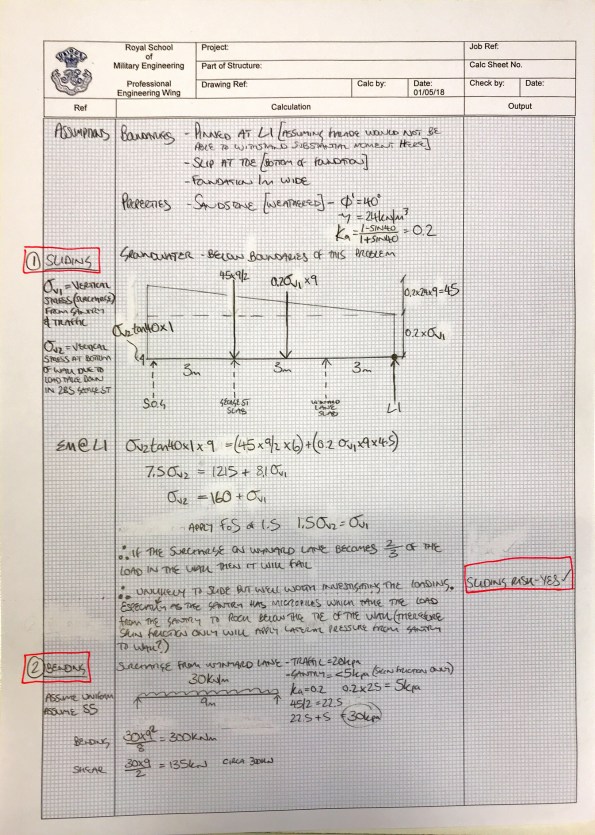 Royal School
of
Military Engineering
Professional
Engineering Wing
Project:
Part of Structure:
Drawing Ref:
Calc by:
Date:
01/05/18
Job Ref:
Calc Sheet No.
Check by:
Date:
Ref
Calculation
Output
ASSUMPTIONS
BOUNDARIES - PINNED AT L1 [ASSUMING FACADE WOULD NOT BE
ABLE TO WITHSTAND SUBSTANTIAL MOMENT HERE]
- SLIP AT TOE [BOTTOM OF FOUNDATION]
- FOUNDATION 1m WIDE
PROPERTIES - SANDSTONE [WEATHERED] - φ'=40°
γ = 24kN/m³
Ka = 1-SIN40/1+SIN40 = 0.2
GROUNDWATER - BELOW BOUNDARIES OF THIS PROBLEM
① SLIDING
σv1 = VERTICAL
STRESS (SURCHARGE)
FROM GANTRY
& TRAFFIC
σv2 = VERTICAL
STRESS AT BOTTOM
OF WALL DUE TO
LOAD TAKE DOWN
IN 285
45x9/2
0.2σv1 x 9
0.2x24x9=45
0.2xσv1
σv2 tan40x1
3m
3m
3m
S.O.G
SLAB
LANE
SLAB
L1
ΣM@L1
σv2 tan40 x 1 x 9 = (45 x 9/2 x 6) + (0.2 σv1 x 9 x 4.5)
7.5σv2 = 1215 + 8.1σv1
σv2 = 160 + σv1
- APPLY FOS of 1.5 1.5σv2 = σv1
∴ IF THE SURCHARGE ON WYNYARD LANE BECOMES 2/3 OF THE
LOAD IN THE WALL THEN IT WILL FAIL
∴ UNLIKELY TO SLIDE BUT WELL WORTH INVESTIGATING THE LOADING.
ESPECIALLY AS THE GANTRY HAS MICROPILES WHICH TAKE THE LOAD
FROM THE GANTRY TO ROCK BELOW THE TOE OF THE WALL (THEREFORE
SKIN FRICTION ONLY WILL APPLY LATERAL PRESSURE FROM GANTRY
TO WALL?)
SLIDING RISK - YES ✓
② BENDING
ASSUME UNIFORM
ASSUME SS
SURCHARGE FROM WYNYARD LANE - TRAFFIC = 20kPa
- GANTRY = <5kPa (SKIN FRICTION ONLY)
30kN/m
9m
Ka=0.2 0.2x25 = 5kPa
45/2 = 22.5
22.5 + 5 = 30kPa
BENDING
30x9²/8 = 300kNm
SHEAR
30x9/2 = 135kN CIRCA 300kN